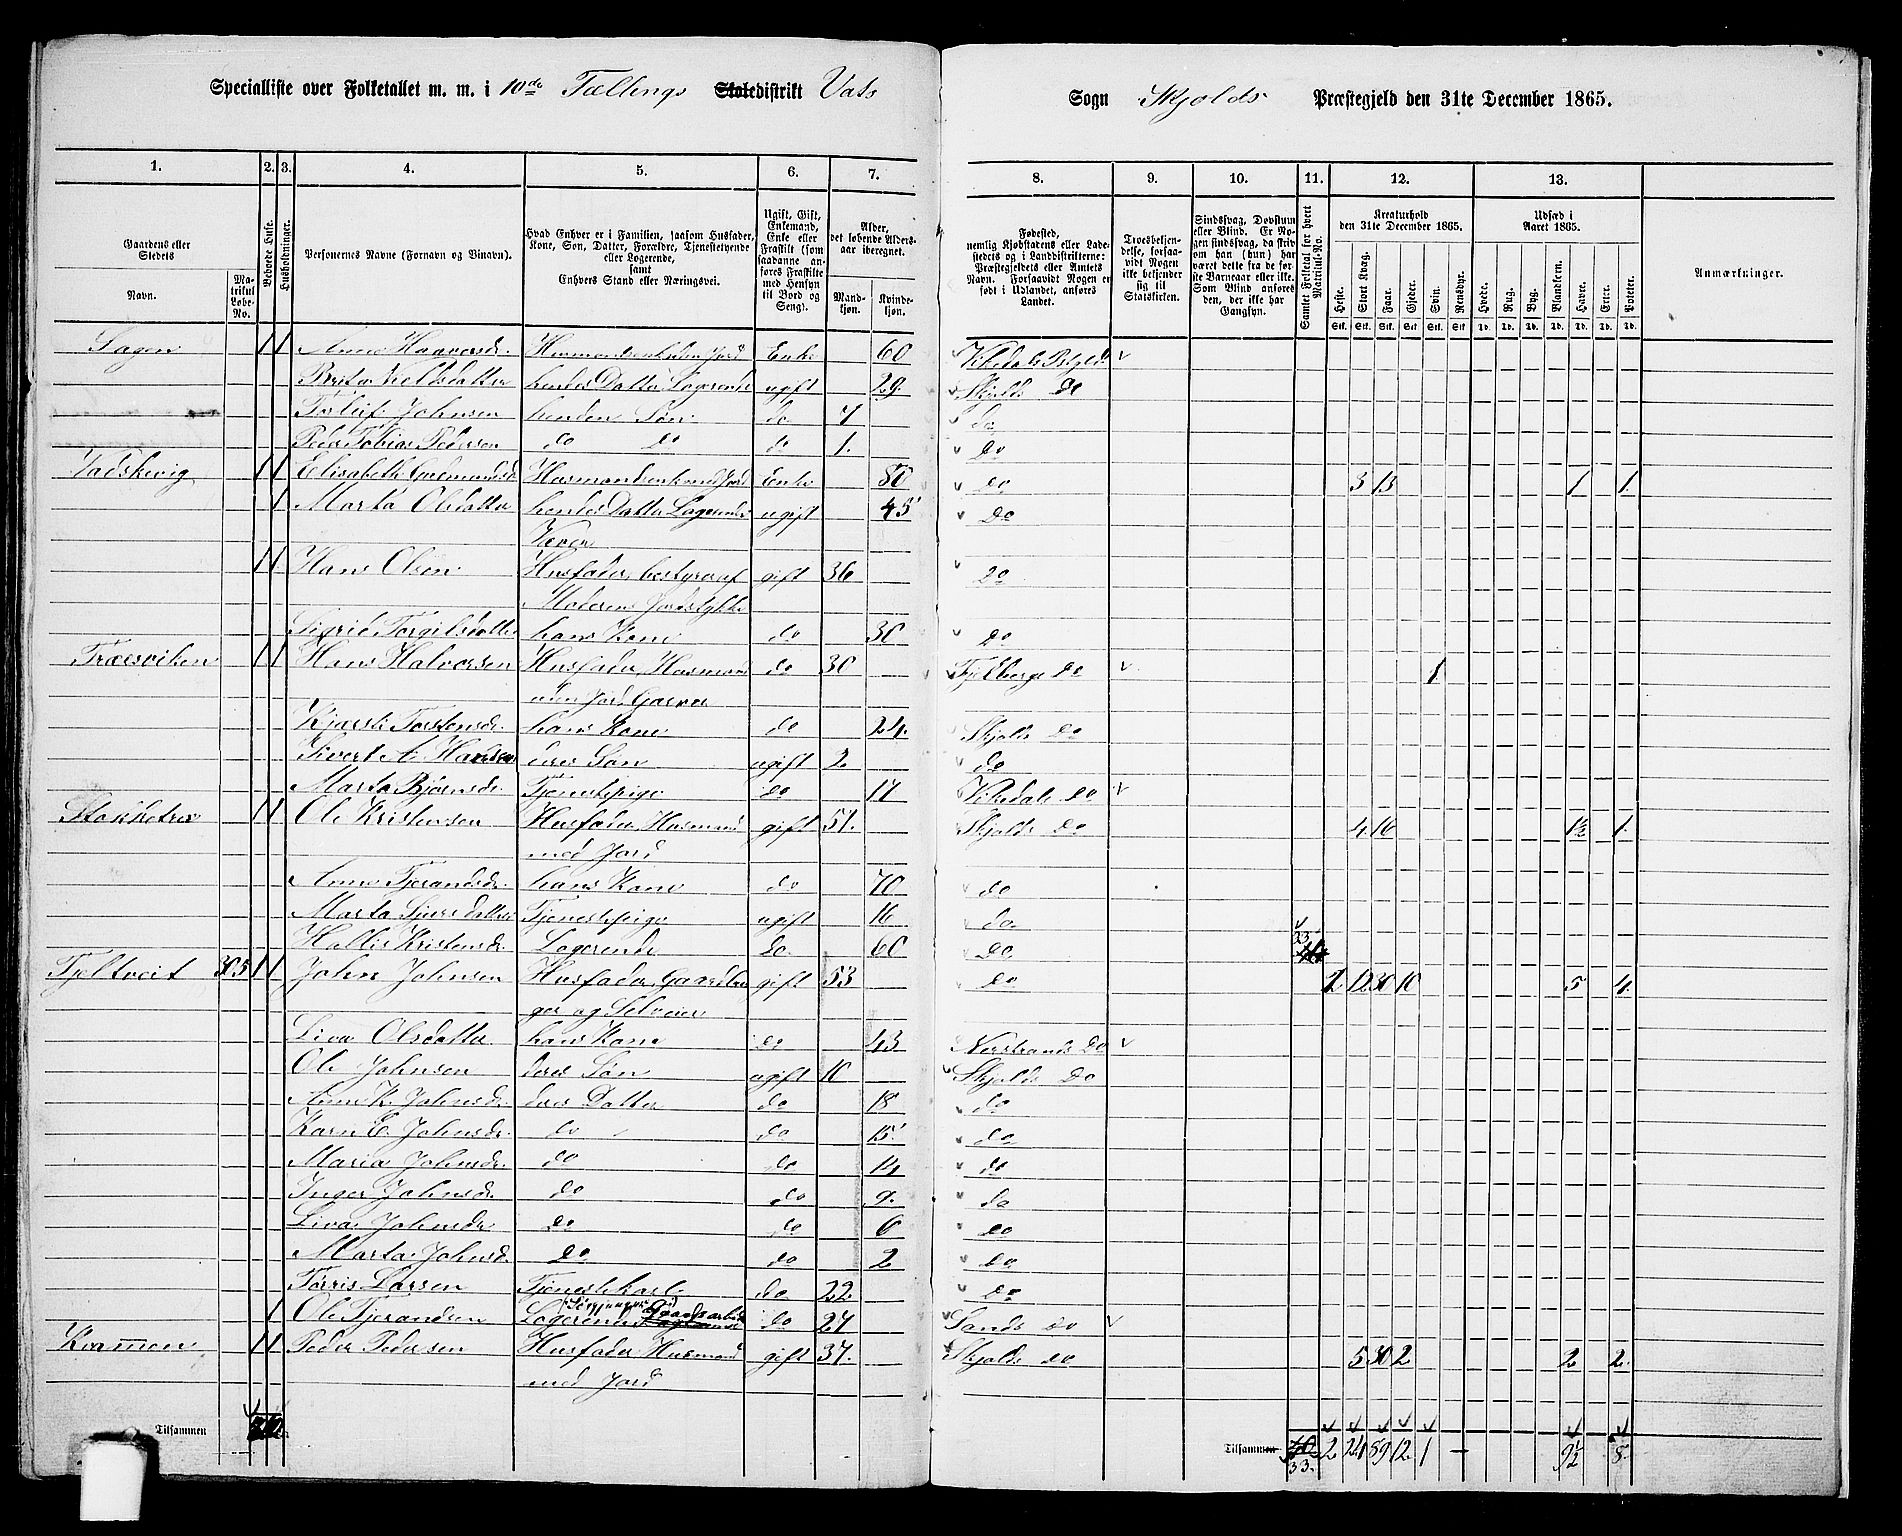 Specialliste over Folketallet m. m. i 10de Tællings Skoledistrikt Vats
Sogn Skjolds Præstegjeld den 31te December 1865.
1. 2. 3. 4. 5. 6. 7.
8. 9. 10. 11. 12. 13.
Gaardens eller Stedets Navn.
Matrikul Løbe-No.
Beboede Huse.
Husholdninger.
Personernes Navne (Fornavn og Vinavn).
Hvad Enhver er i Familien, saasom Husfader, Kone, Søn, Datter, Forældre, Tjenestetyende eller Logerende, samt Enhvers Stand eller Næringsvei.
Ugift, Gift, Enkemand, Enke eller Fraskilt (som saadanne anføres Fraskilte med Hensyn til Bord og Seng).
Alder, det løbende Aldersaar iberegnet.
Mandkjøn. Kvindekjøn.
Fødested, nemlig Kjøbstadens eller Ladestedets og i Landdistrikterne: Præstegjeldets eller Amtets Navn. Forsaavidt Nogen er født i Udlandet, anføres Landet.
Troesbekjendelse, forsaavidt Nogen ikke bekjender sig til Statskirken.
Sindssvag, Døvstum eller Blind. Er Nogen sindssvag, da skrives om han (hun) har været dette fra de første Barneaar eller ikke. Som Blind anføres den, der ikke har Gangsyn.
Samlet Folketal for hvert Matrikul-No.
Kreaturhold den 31te December 1865.
Heste. Stort Kvæg. Faar. Gjeder. Svin. Rensdyr.
Udsæd i Aaret 1865.
Hvede. Rug. Byg. Blandkorn. Havre. Erter. Poteter.
Stk. Stk. Stk. Stk. Stk. Stk. Td. Td. Td. Td. Td. Td. Td.
Anmærkninger.
Sagen 1 1 Anne Haavorsdr. Enke 60 Vikedals Pstgjld
Brita Nielsdatter hendes Datter Logerende ugift 29. Skjolds do
Torleif Johnsen hendes Søn do 7 do
Peder Tobias Pedersen do do do 1. do
Vadskevig 1 1 Elisabeth Gudmundsd. Enke 80 do 3 13 1 1.
1 Marta Olsdatter hendes Datter Logerende ugift 45 do
Væver
1 1 Hans Olsen Husfader, bestyrer af gift 36 do
Moderens Jordstykke
Sigrid Torgilsdatter hans Kone do 30 do
Træsviken 1 1 Hans Halvorsen Husfader, Husmand do 30 Fjelbergs do 1
uden Jord, Garver
Kjærsti Torstensdr. hans Kone do 24. Skjolds do
Sivert A. Hansen deres Søn ugift 2 do
Marta Bjørnsdr. Tjenestepige do 17 Vikedals do
Stokketræ 1 1 Ole Kristensen Husfader, Husmand gift 51. Skjolds do 4 16 1½ 1.
med Jord
Anne Tjerandsdr. hans Kone do 70 do
Marta Sjursdatter Tjenestepige ugift 16 do
Kristensdr. Logerende do 60 do 23
Tjeltveit 305 1 1 John Johnsen Husfader, Gaardbru gift 53 do 2 12 30 10 5 4.
ger og Selveier
Liva Olsdatter hans Kone do 43 Nerstrands do
Ole Johnsen deres Søn ugift 10 Skjolds do
Anne K. Johnsdr. deres Datter do 18 do
Karn E. Johnsdr. do do 15 do
Maria Johnsdr. do do 14 do
Inger Johnsdr. do do 9. do
Liva Johnsdr. do do 6 do
Marta Johnsdr. do do 2 do
Torris Larsen Tjenestekarl do 22 do
1 Ole Tjerandsen Logerende Gaardsarbeide do 27 Sands do
1 1 Peder Pedersen Husfader, Husmand gift 37. Skjolds do 5 30 2 2 2.
med Jord
Tilsammen
Tilsammen 30 2 24 89 12 1 — 9½ 8.
33.